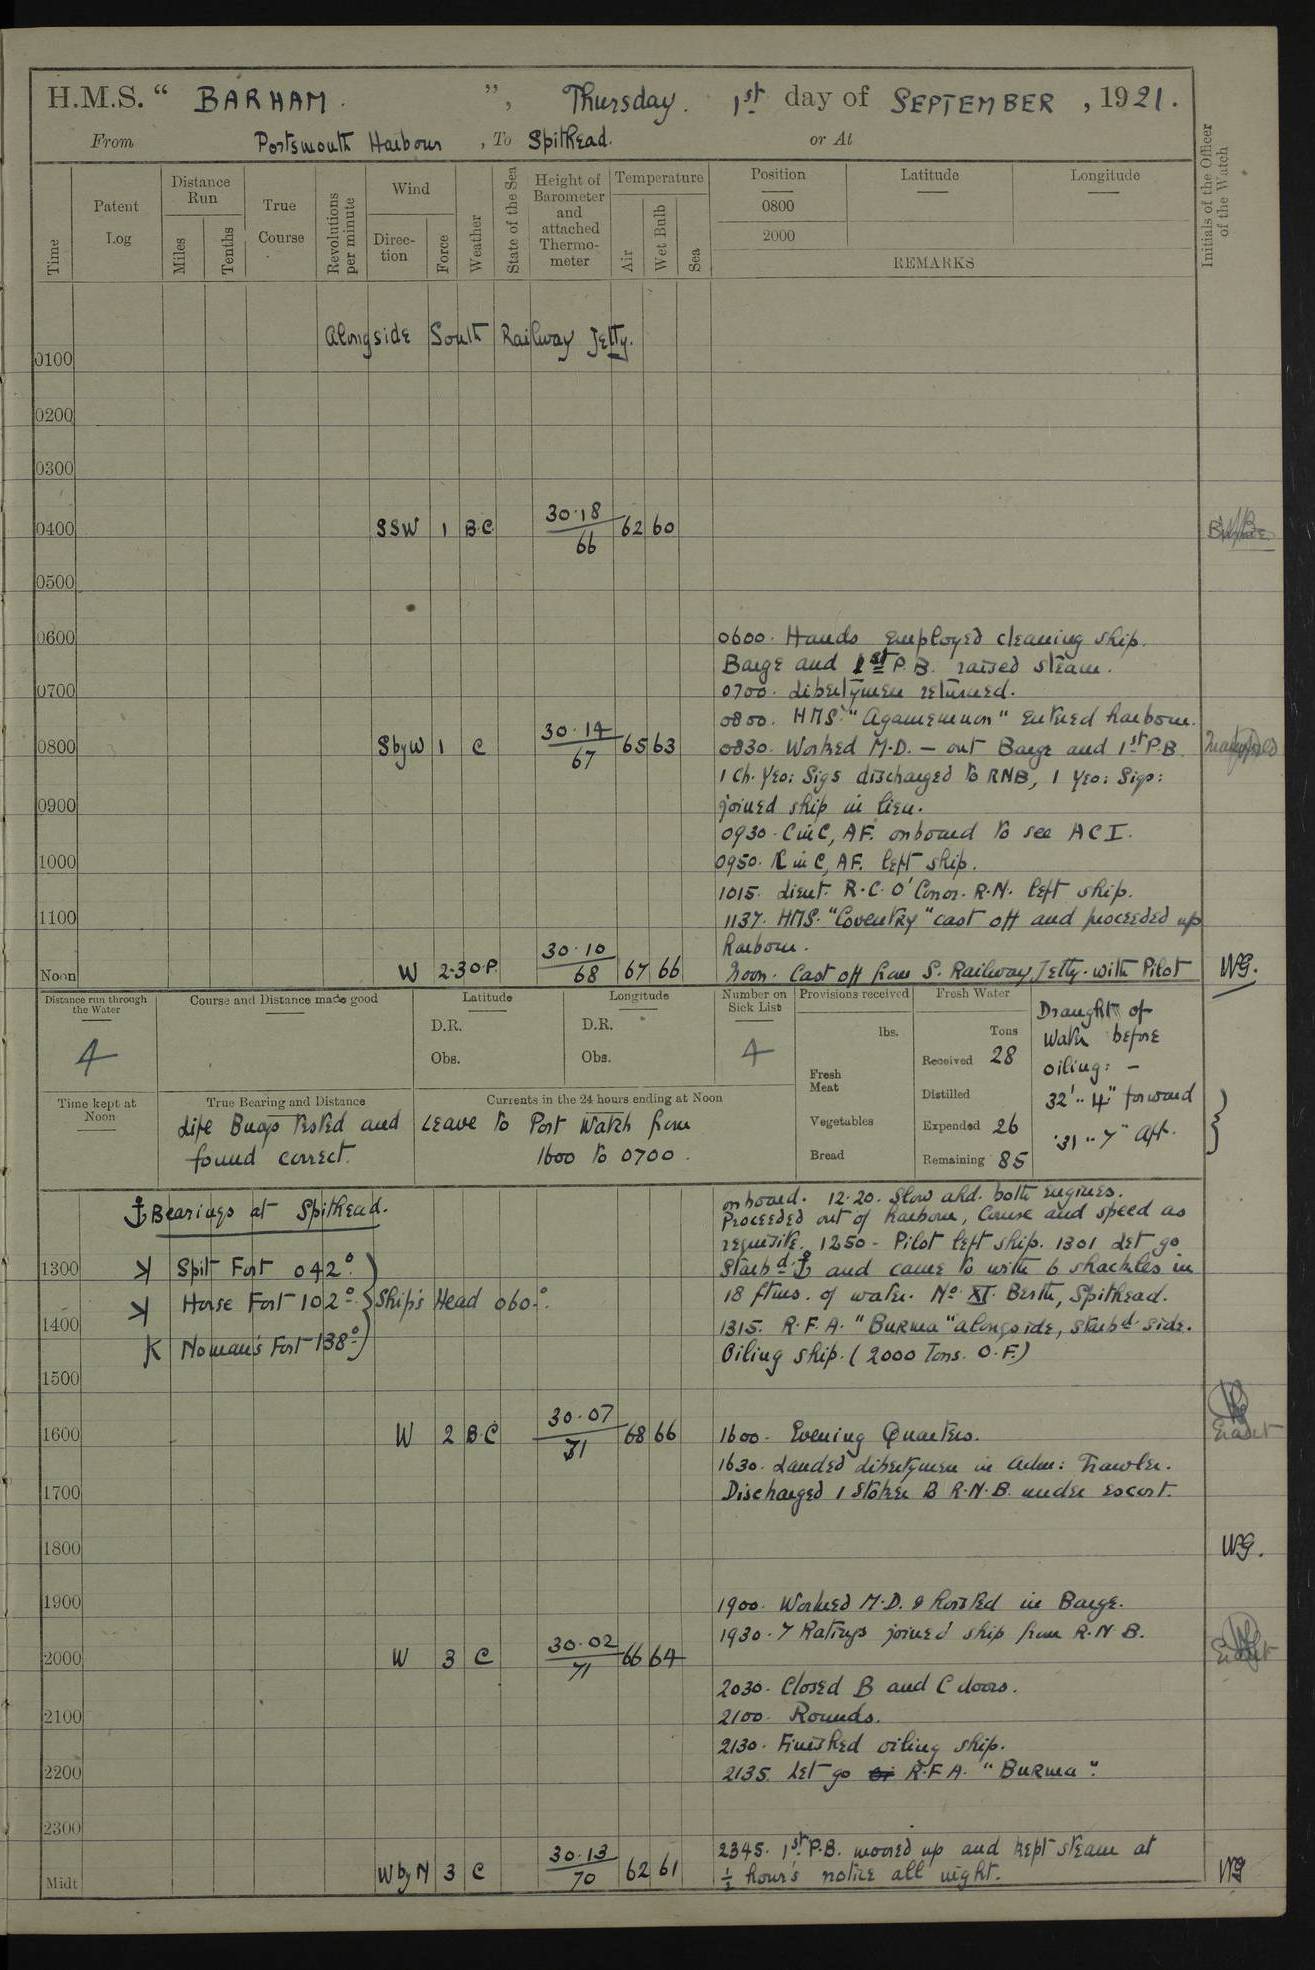 H.M.S. “ BARHAM. ”, Thursday. 1st day of SEPTEMBER, 1921.
From Portsmouth Harbour, To Spithead. or At
Time
Patent Log
Distance Run
Miles
Tenths
True Course
Revolutions per minute
Wind
Direction
Force
Weather
State of the Sea
Height of Barometer and attached Thermometer
Temperature
Air
Wet Bulb
Sea
Position
0800
2000
Latitude
Longitude
REMARKS
Initials of the Officer of the Watch
Alongside South Railway Jetty.
0100
0200
0300
0400 SSW 1 B.C. 30.18 66 62 60
0500
0600 0600. Hands employed cleaning ship.
Barge and 1st P.B. raised steam.
0700 0700. Libertymen returned.
0800. HMS. "Agamemnon" entered harbour.
0800 SbyW 1 C 30.14 67 65 63 0830. Worked M.D. – out Barge and 1st P.B.
1 Ch. Yeo: Sigs discharged to RNB, 1 Yeo: Sigs:
0900 joined ship in lieu.
0930. C in C, A.F. onboard to see ACI.
1000 0950. C in C, A.F. left ship.
1015. Lieut. R.C. O'Conor. R.N. left ship.
1100 1137. HMS. "Coventry" cast off and proceeded up
harbour.
Noon W 2-3 O.P. 30.10 68 67 66 Noon. Cast off from S. Railway Jetty. with Pilot WG.
Distance run through the Water
4
Course and Distance made good
Latitude
D.R.
Obs.
Longitude
D.R.
Obs.
Number on Sick List
4
Provisions received
lbs.
Fresh Meat
Vegetables
Bread
Fresh Water
Tons
Received 28
Distilled
Expended 26
Remaining 85
Draught of
Water before
oiling: –
32' .. 4" forward
31 .. 7" Aft.
Time kept at Noon
True Bearing and Distance
Currents in the 24 hours ending at Noon
Life Buoys tested and
found correct.
Leave to Port Watch from
1600 to 0700.
⚓ Bearings at Spithead.
onboard. 12.20. Slow ahd. both engines.
Proceeded out of harbour, Course and speed as
requisite. 1250 - Pilot left ship. 1301 Let go
1300 Spit Fort 042°. Starbd ⚓ and came to with 6 shackles in
Horse Fort 102°. Ship's Head 060°. 18 ftms. of water. No. XI Berth, Spithead.
1400 1315. R.F.A. "Burma" alongside, starbd. side.
Noman's Fort 138° Oiling ship. (2000 Tons. O.F.)
1500
1600 W 2 B.C 30.07 71 68 66 1600. Evening Quarters.
1630. Landed libertymen in Adm: Trawler.
1700 Discharged 1 Stoker to R.N.B. under escort.
1800 WG.
1900 1900. Worked M.D. & hoisted in Barge.
1930. 7 Ratings joined ship from R.N.B.
2000 W 3 C 30.02 71 66 64
2030. Closed B and C doors.
2100 2100. Rounds.
2130. Finished oiling ship.
2200 2135. Let go R.F.A. "Burma".
2300
2345. 1st P.B. moored up and kept steam at
Midt WbyN 3 C 30.13 70 62 61 ½ hour's notice all night. WG